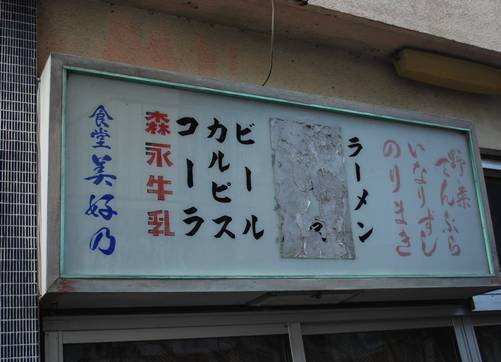 野菜
てんぷら
いなりずし
のりまき
ラーメン
ビール
カルピス
コーラ
森永牛乳
食堂美好乃